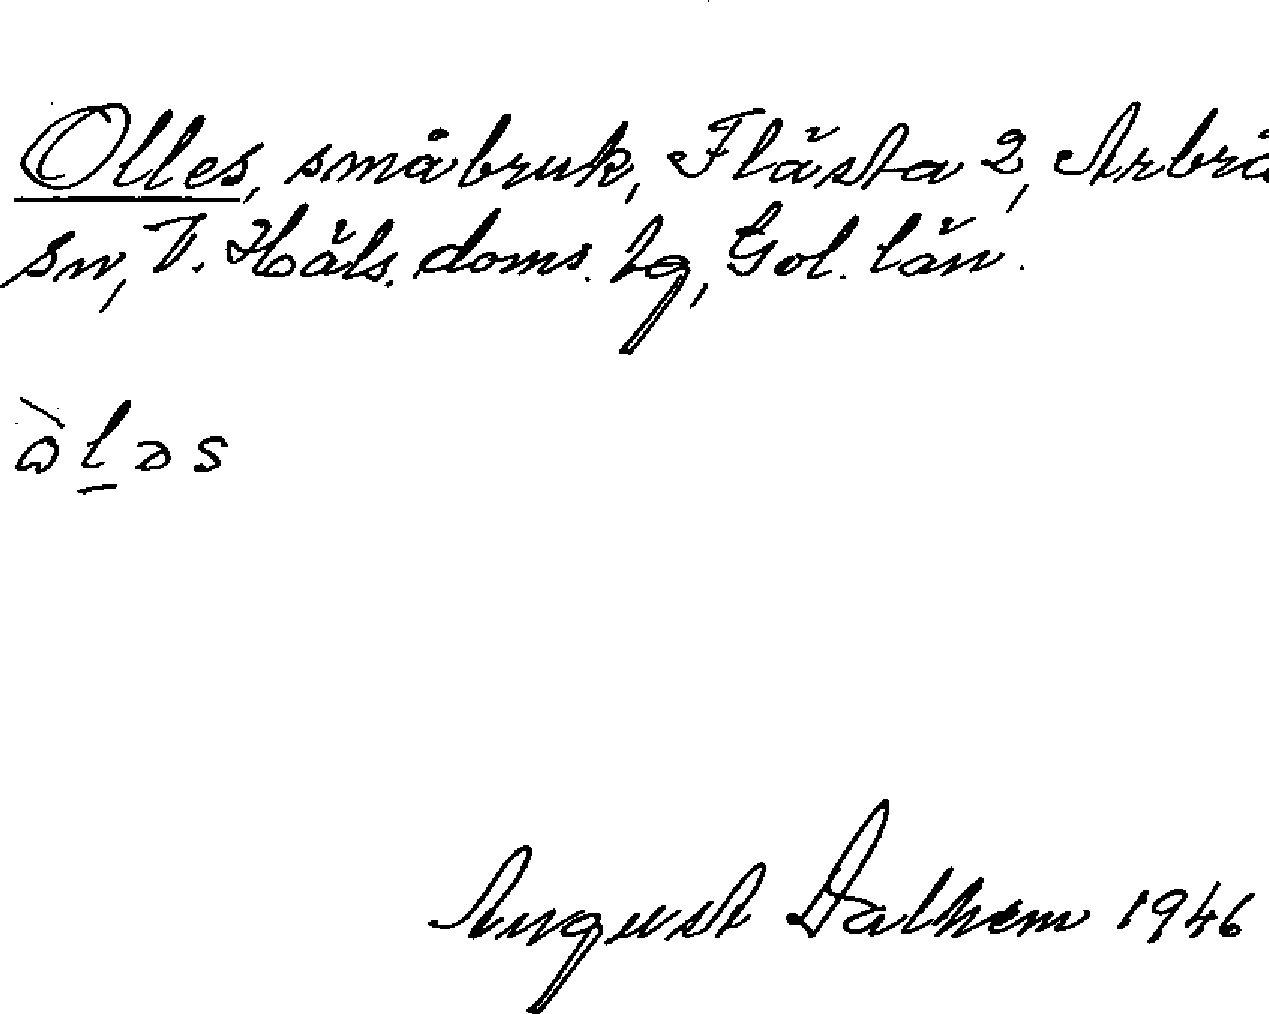 Olles, småbruk, Flästa 2, Arbrå
sn, V. Häls. doms. tg, Gvl. län.
òl̲əs
August Dalhem 1946